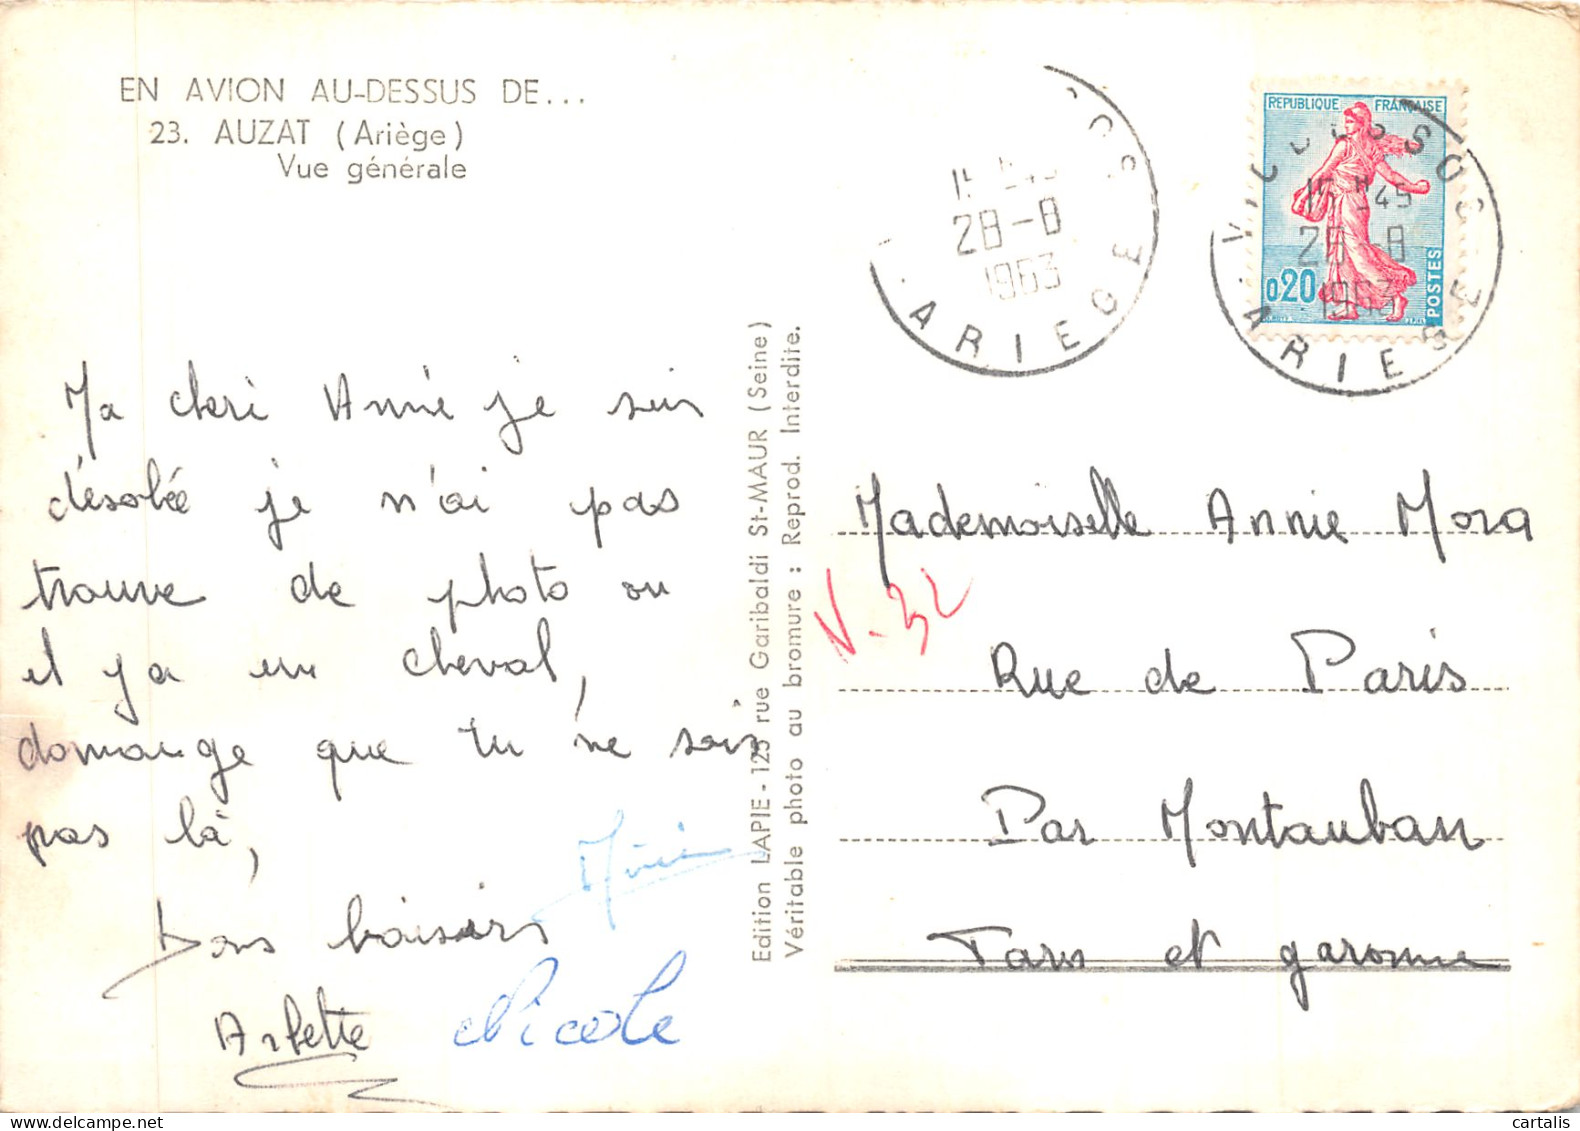 EN AVION AU-DESSUS DE...
23. AUZAT (Ariège)
Vue générale
Ma cheri Annie je suis
désolée je n'ai pas
trouve de photo ou
il y a un cheval,
domange que tu ne sois
pas là,
Bons baisers
Arlette
Nicole
Edition LAPIE - 125 rue Garibaldi St-MAUR (Seine)
Véritable photo au bromure : Reprod. Interdite.
28-8
1963
ARIEGE
REPUBLIQUE FRANÇAISE
0,20
POSTES
VICDESSOS
15H45
28-8
1963
ARIEGE
Mademoiselle Annie Mora
V. 32
Rue de Paris
Par Montauban
Tarn et garonne
cartalis